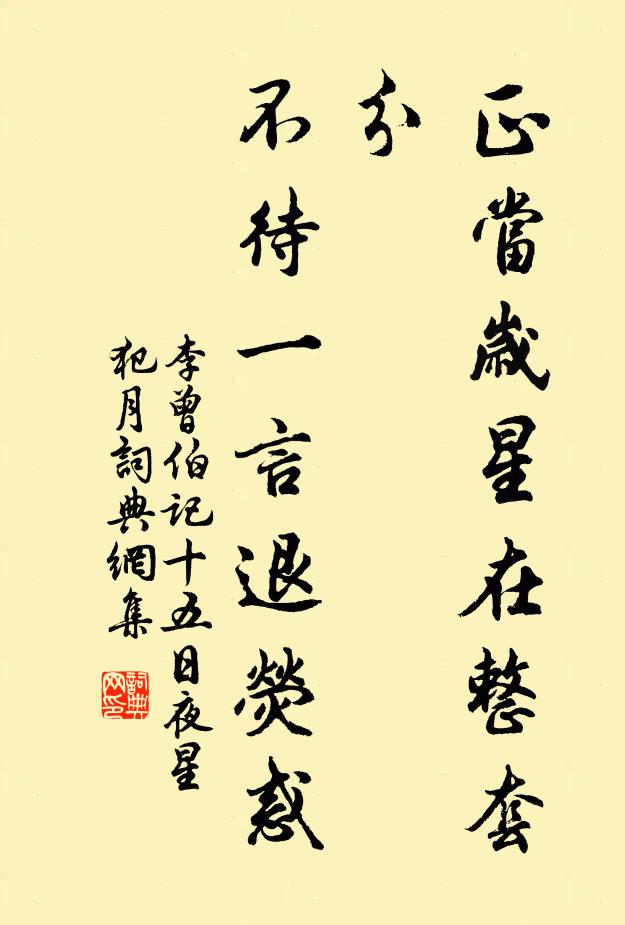 正當歲星在整套
分
不待一言退熒惑
李曾伯記十五日夜星
犯月詞典網集
詞典
网印